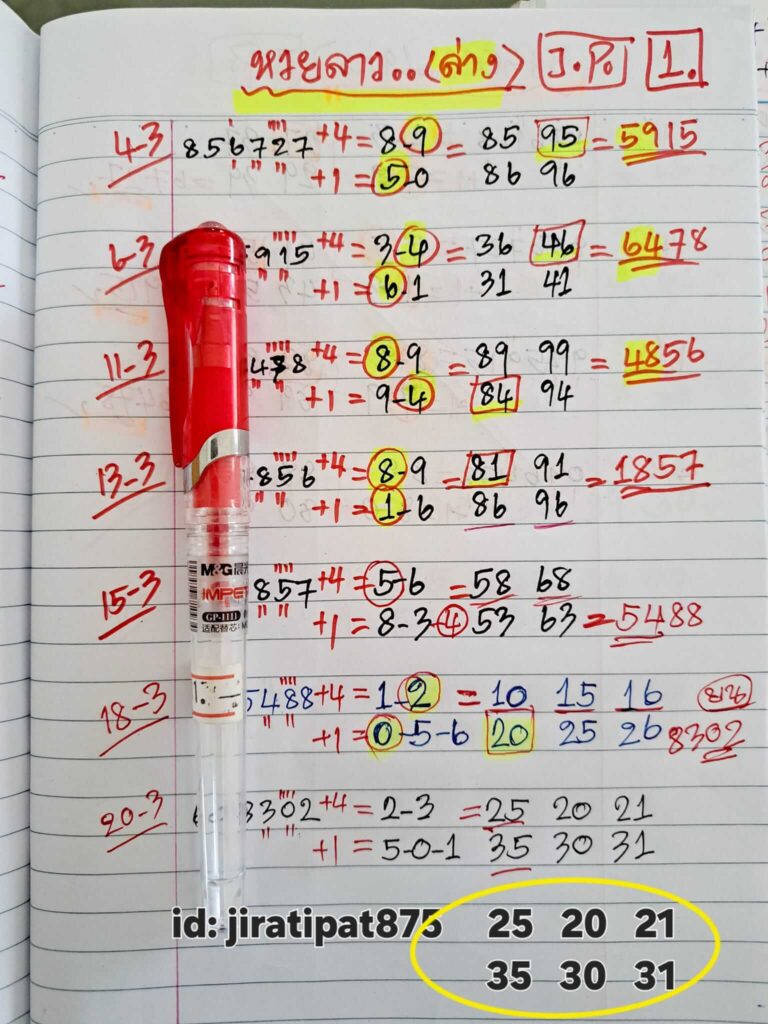 หวยลาว..(ล่าง) J.P. 1.
4-3 856727 +4 = 8-9 = 85 95 = 5915
+1 = 5-0 86 96
6-3 5915 +4 = 3-4 = 36 46 = 6478
+1 = 6-1 31 41
11-3 478 +4 = 8-9 = 89 99 = 4856
+1 = 9-4 84 94
13-3 856 +4 = 8-9 = 81 91 = 1857
+1 = 1-6 86 96
15-3 857 +4 = 5-6 = 58 68
+1 = 8-3-4 53 63 = 5488
18-3 5488 +4 = 1-2 = 10 15 16 บน
+1 = 0-5-6 20 25 26 8302
20-3 8302 +4 = 2-3 = 25 20 21
+1 = 5-0-1 35 30 31
M&G 晨光
IMPE
GP-1111
适配替芯:
1.
id: jiratipat875 25 20 21
35 30 31